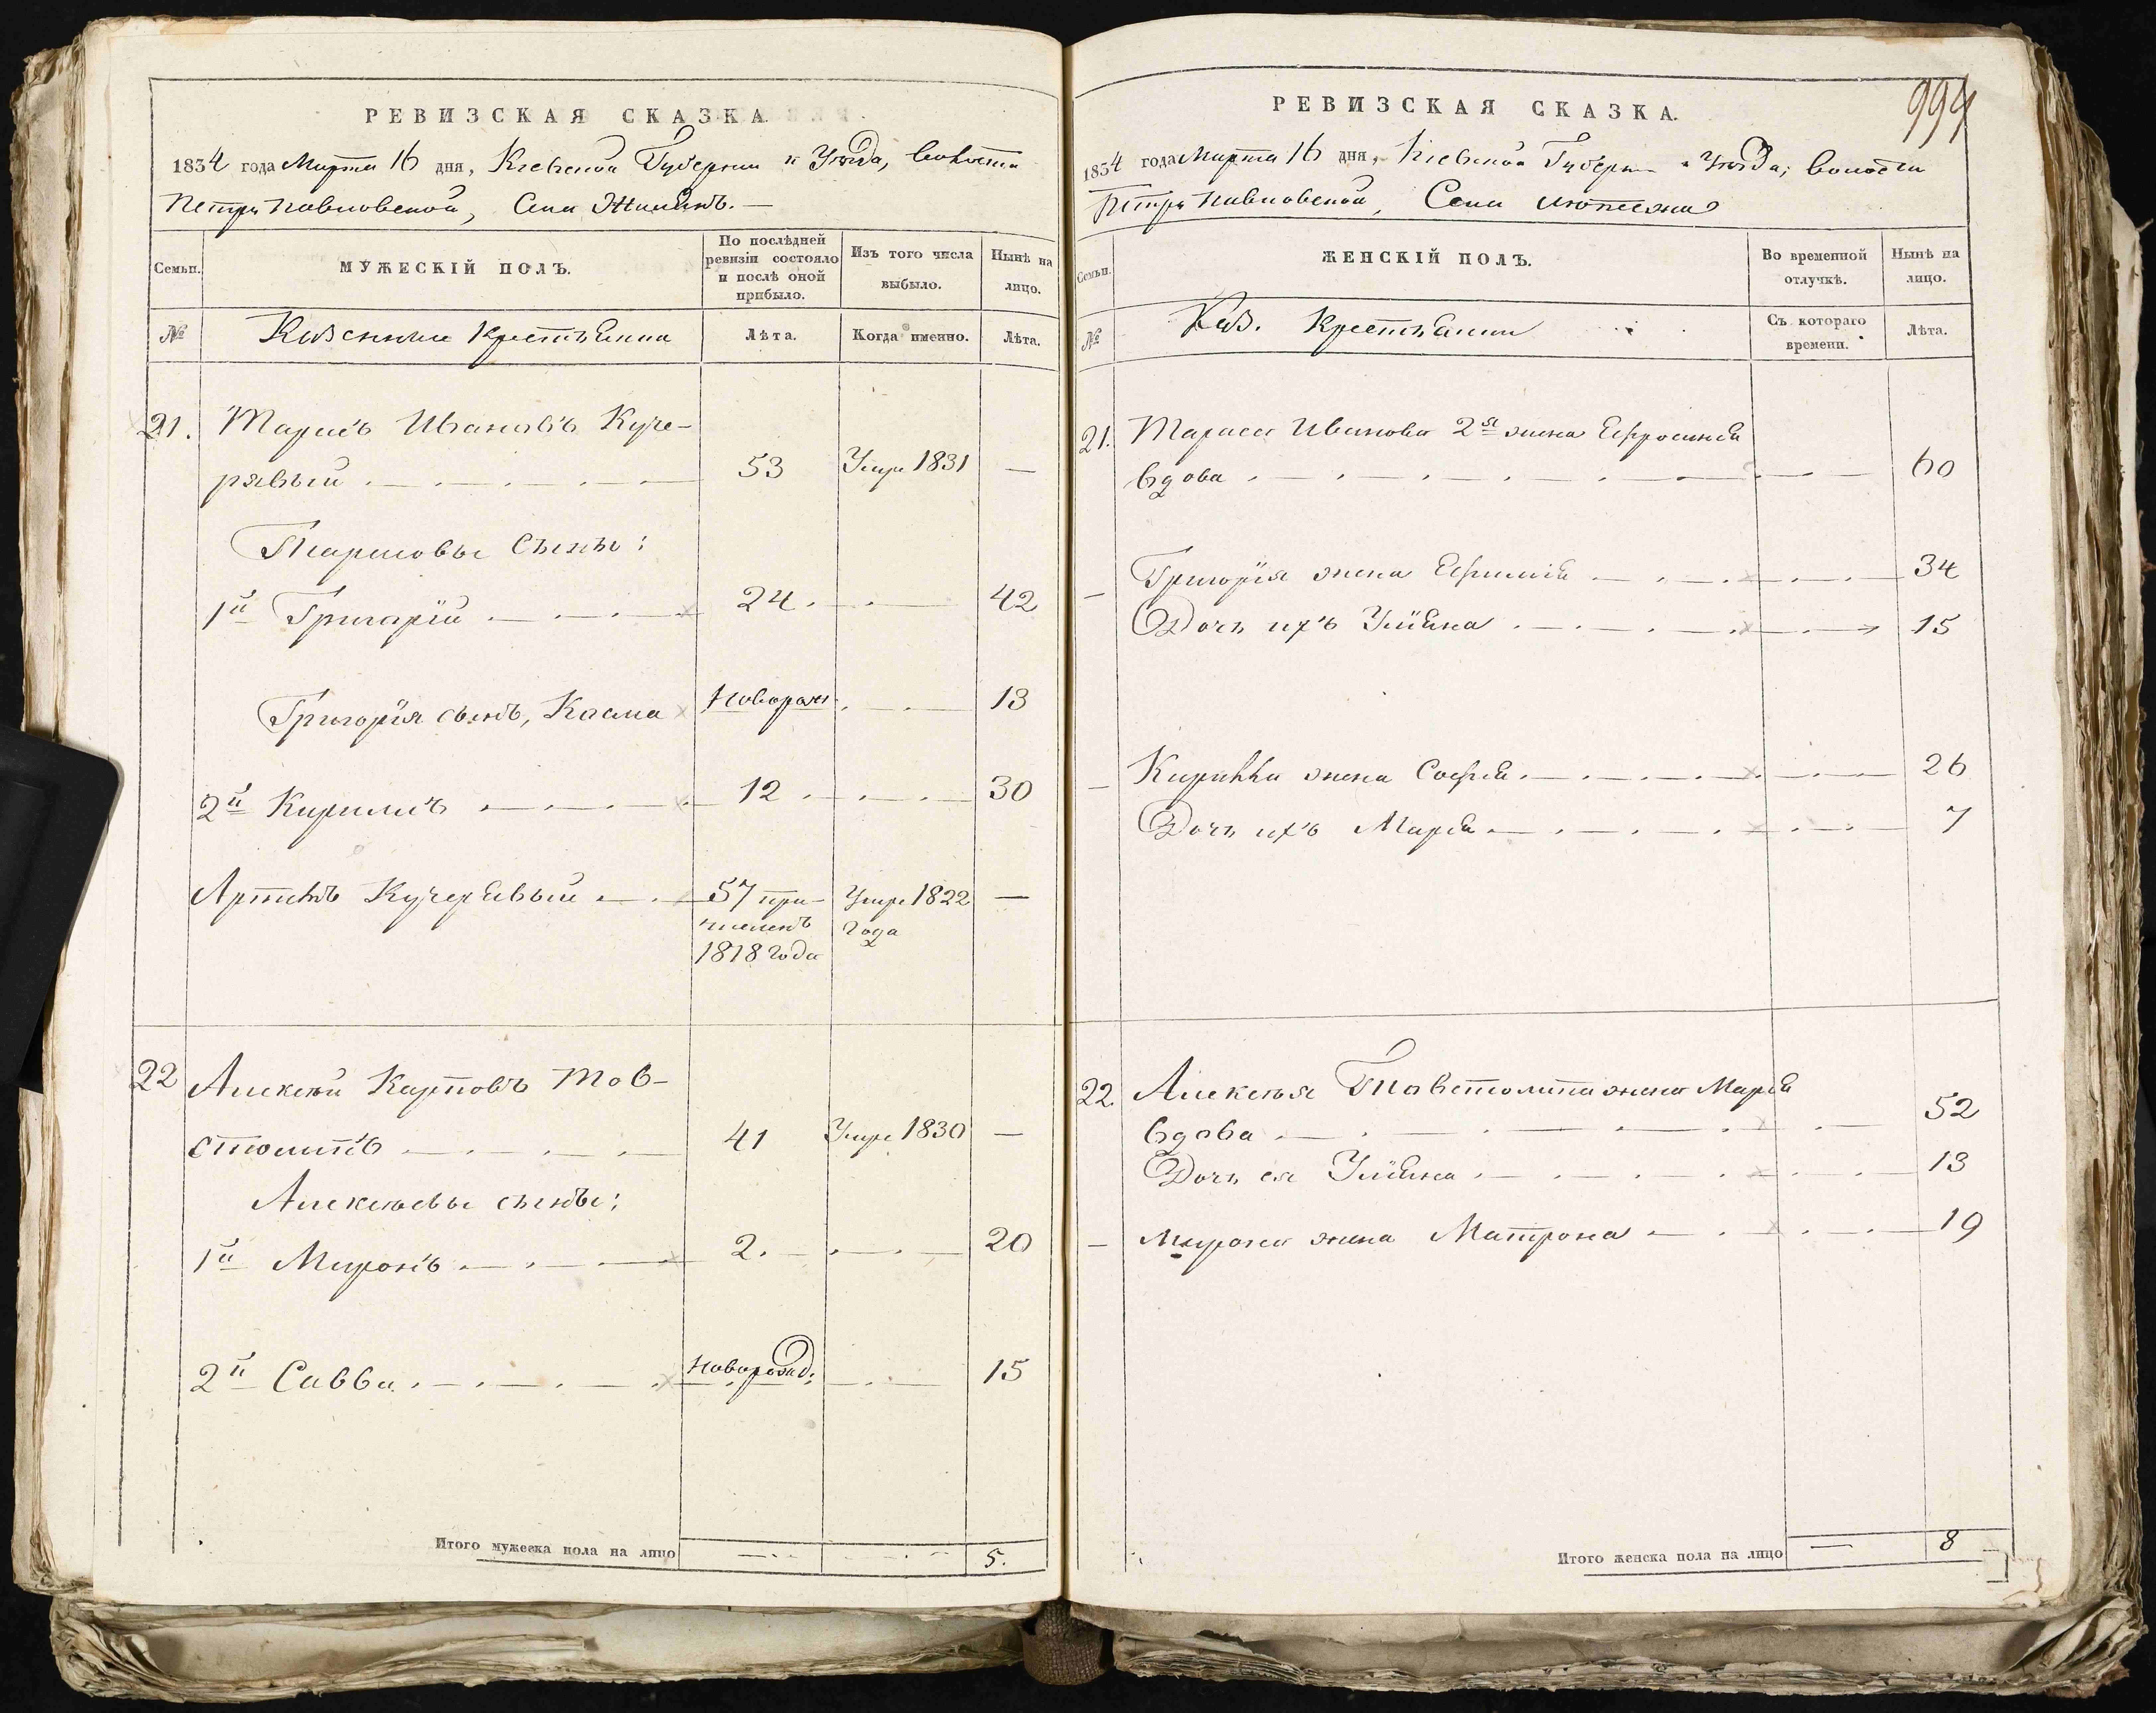 РЕВИЗСКАЯ СКАЗКА
1834 года Марта 16 дня, Кіевской Губерніи и Уѣзда, волости
Петро Павловской, Села
Семьи.
МУЖЕСКІЙ ПОЛЪ.
По послѣдней ревизіи состояло и послѣ оной прибыло.
Изъ того числа выбыло.
Нынѣ на лицо.
№
Казенные крестьяне
Лѣта.
Когда именно.
Лѣта.
21. Тарасъ Ивановъ Куче-
рявый 53 Умре 1831 —
Тарасовы сыны:
1й Григорій 24 42
Григорія сынъ, Косма Новорож 13
2й Кирилъ 12 30
Кучерявый 57 при- Умре 1822 —
численъ года
1818 года
22 Алексѣй Карповъ Тов-
столитъ 41 Умре 1830 —
Алексѣевы сыны:
1й Миронъ 2. 20
2й Савва Поворожд: 15
Итого мужеска пола на лицо 5.
994
РЕВИЗСКАЯ СКАЗКА.
1834 года Марта 16 дня, Кіевской Губерн и Уѣзда, волости
Петро Павловской, Села
Семьи.
ЖЕНСКІЙ ПОЛЪ.
Во временной отлучкѣ.
Нынѣ на лицо.
№
Каз. крестьяне
Съ котораго времени.
Лѣта.
21. Тараса Иванова 2я жена Ефросинья
вдова 60
— Григорія жена Ефимія 34
Дочь ихъ Уліяна 15
— Кирилла жена Софія 26
Дочь ихъ Марья 7
22. Алексѣя Товстолита жена Марья
вдова 52
Дочь ея Уліяна 13
— Мирона жена Матрона 19
Итого женска пола на лицо — 8